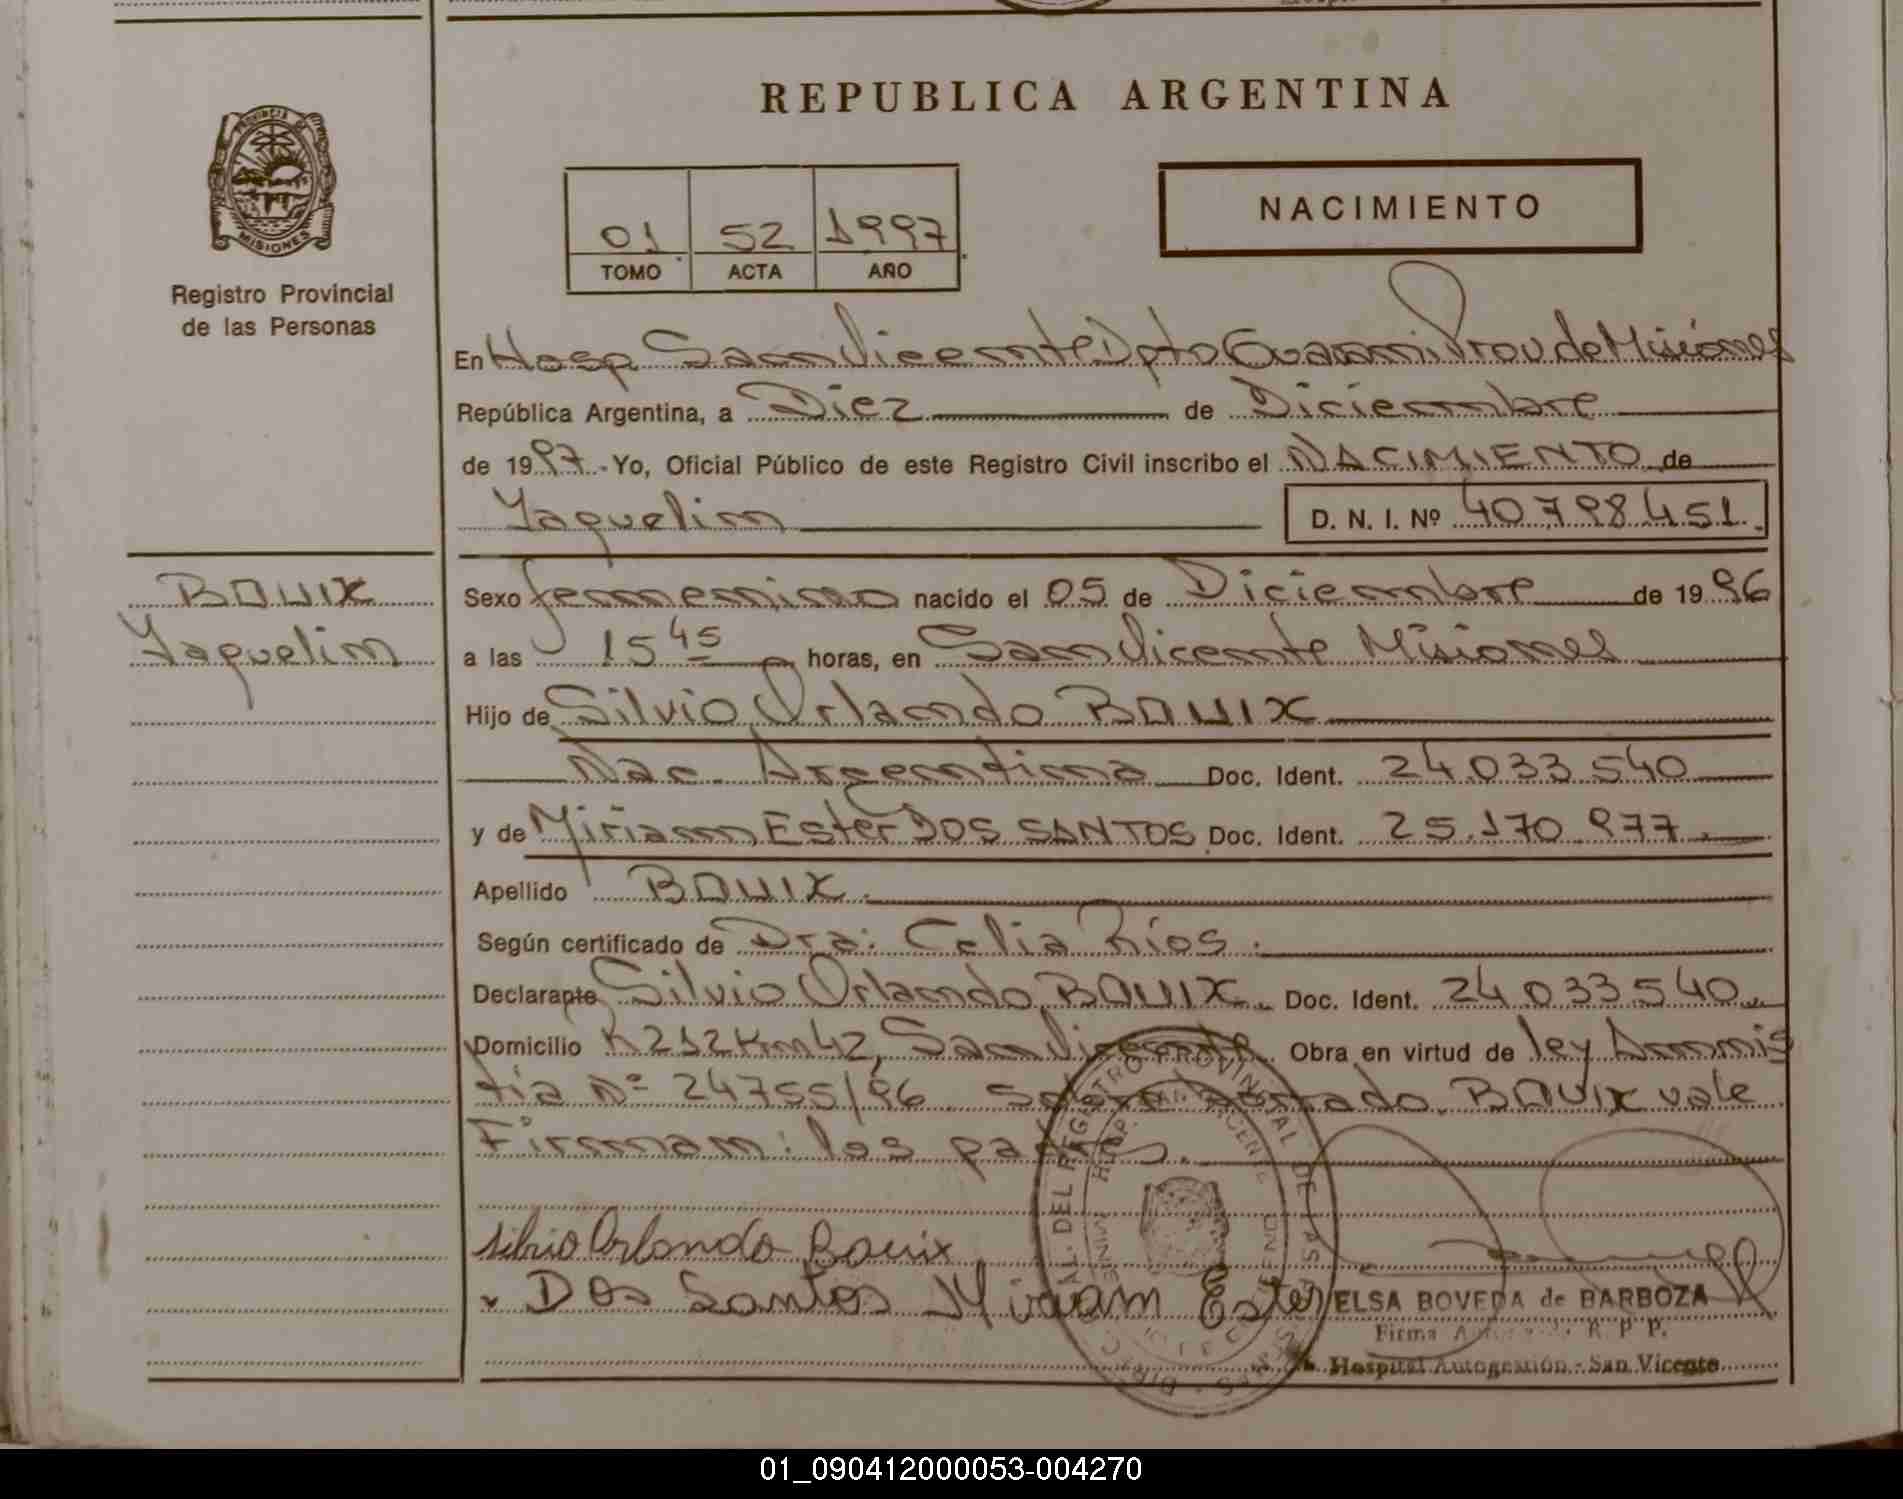 REPUBLICA ARGENTINA
PROVINCIA DE
MISIONES
Registro Provincial
de las Personas
01 52 1997
TOMO ACTA AÑO
NACIMIENTO
En Hosp San Vicente Dpto Guarani Prov de Misiones
República Argentina, a Diez de Diciembre
de 1997. Yo, Oficial Público de este Registro Civil inscribo el NACIMIENTO de
Yaquelin D. N. I. Nº 40798451.
BOUIX
Yaquelin
Sexo femenino nacido el 05 de Diciembre de 1996
a las 15 45 horas, en San Vicente Misiones
Hijo de Silvio Orlando BOUIX
Nac. Argentina Doc. Ident. 24.033 540
y de Miriam Ester DOS SANTOS Doc. Ident. 25.170 977.
Apellido BOUIX.
Según certificado de Dra: Celia Ríos.
Declarante Silvio Orlando BOUIX. Doc. Ident. 24 033 540.
Domicilio R212 Km 42, San Vicente Obra en virtud de ley Amnis
tia Nº 24755/96. Sobre borrado. BOUIX vale
Firman: los padres.
Silvio Orlando Bouix
Dos Santos Miriam Ester
ELSA BOVEDA de BARBOZA
Firma R. P. P.
Hospital Autogestión - San Vicente
DEL REGISTRO PROVINCIAL DE LAS
01_090412000053-004270